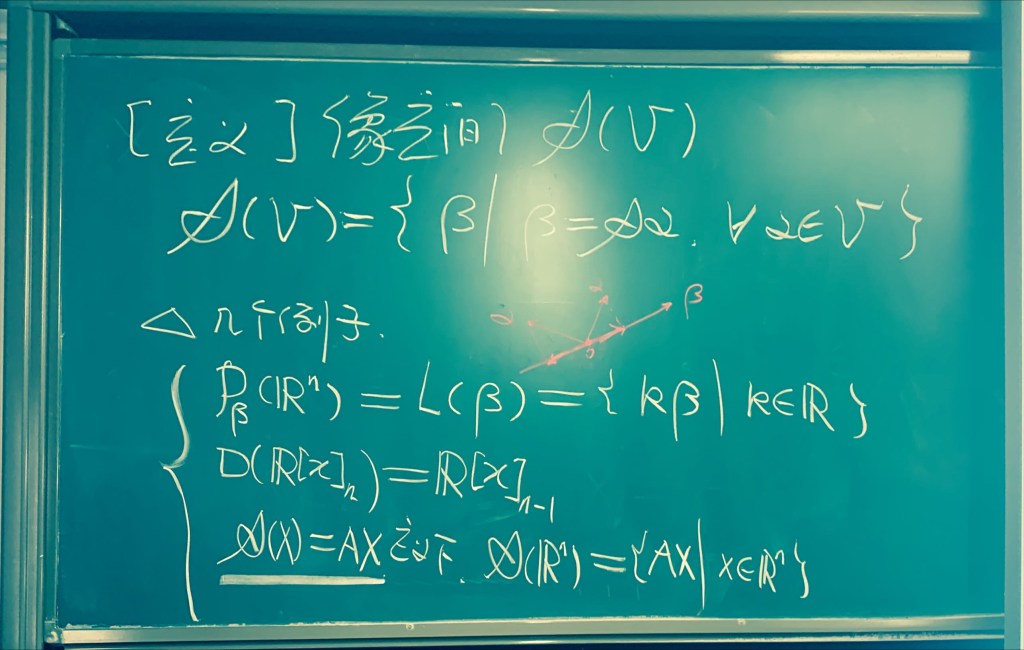 [定义] 像空间 𝒜(V)
𝒜(V) = { β | β = 𝒜α. ∀ α ∈ V }
△ 几个例子.
α α β
0
P_β(ℝⁿ) = L(β) = { kβ | k ∈ ℝ }
D(ℝ[x]_n) = ℝ[x]_{n-1}
𝒜(X) = AX 定义下. 𝒜(ℝⁿ) = { AX | X ∈ ℝⁿ }